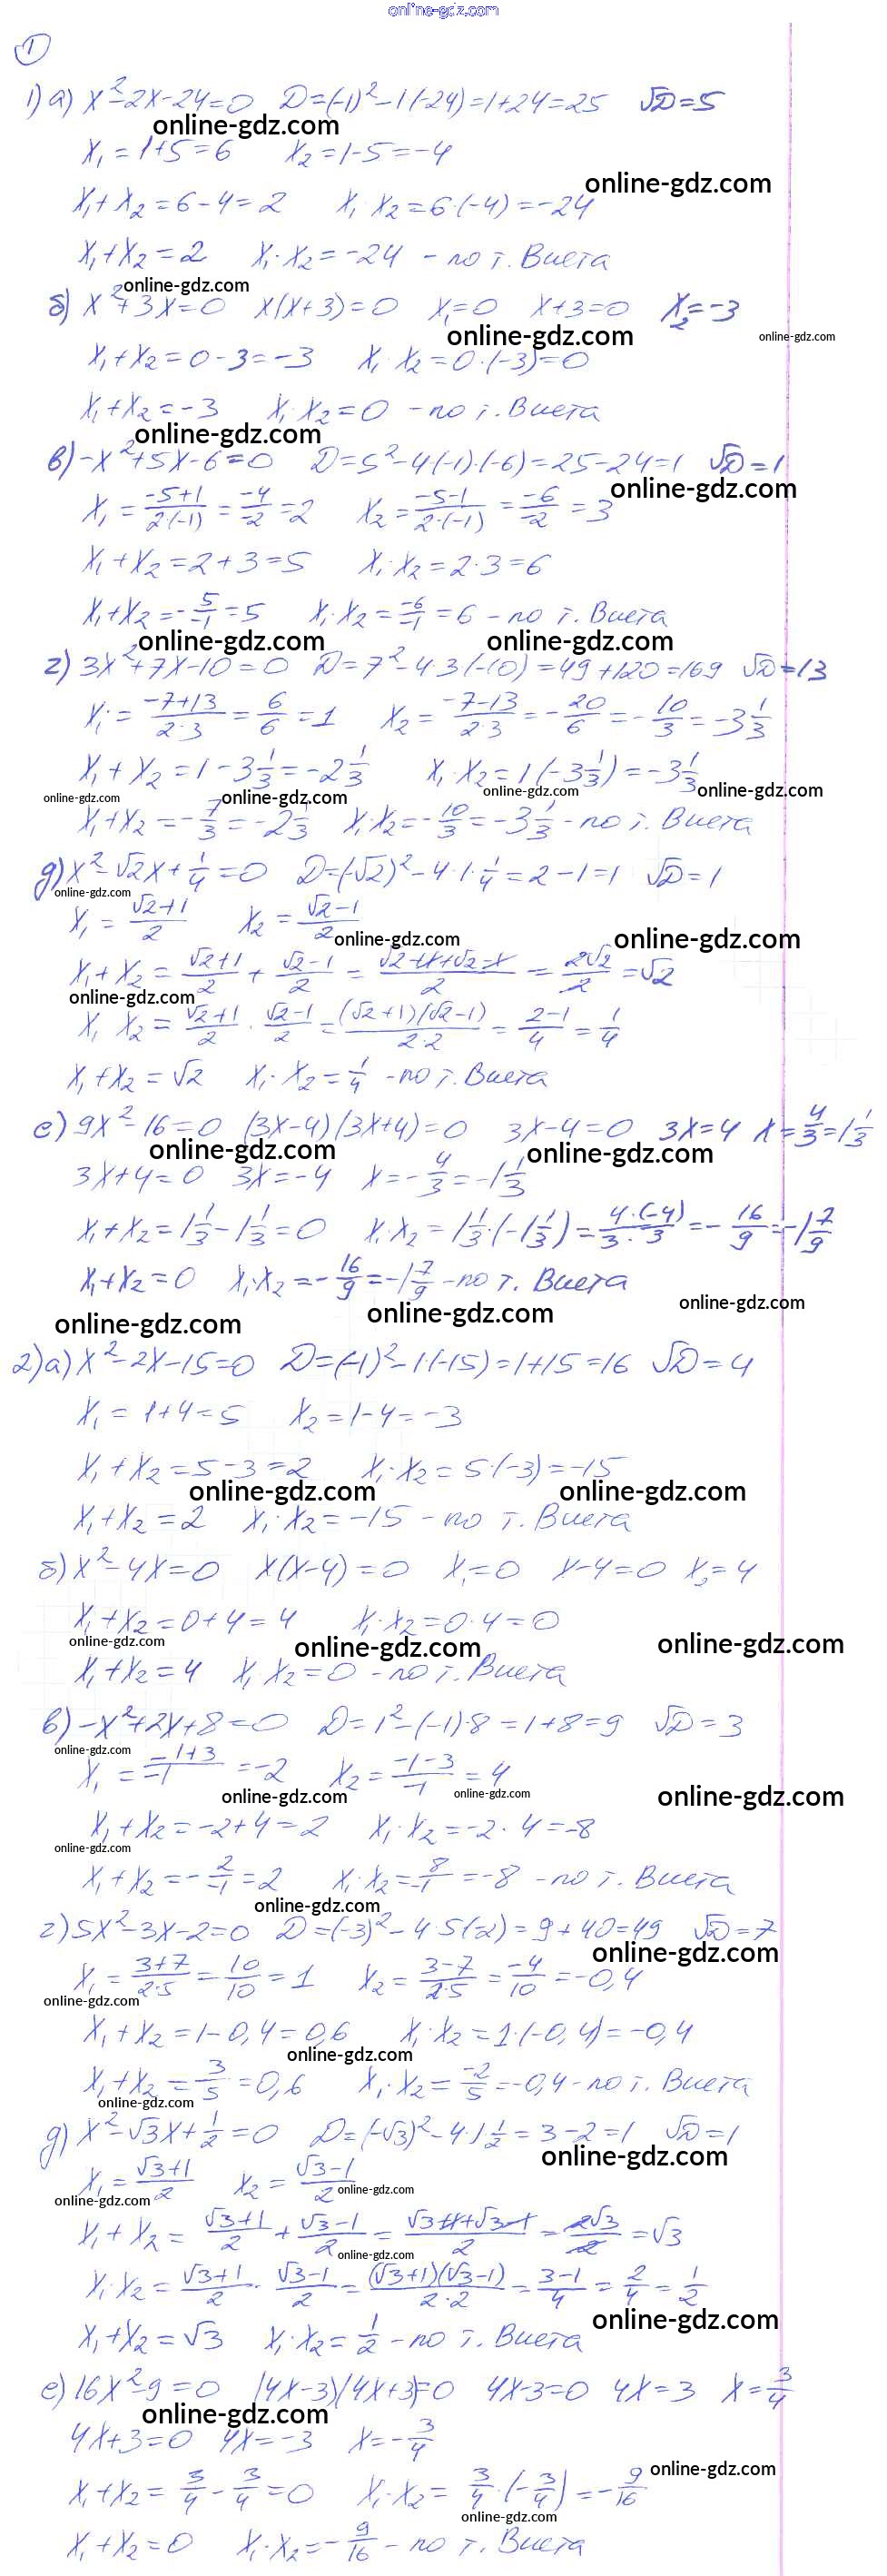 online-gdz.com
1
1) а) x²-2x-24=0 D=(-1)²-1(-24)=1+24=25 √D=5
online-gdz.com
x₁=1+5=6 x₂=1-5=-4
online-gdz.com
x₁+x₂=6-4=2 x₁·x₂=6·(-4)=-24
x₁+x₂=2 x₁·x₂=-24 - по т. Виета
online-gdz.com
б) x²+3x=0 x(x+3)=0 x₁=0 x+3=0 x₂=-3
online-gdz.com online-gdz.com
x₁+x₂=0-3=-3 x₁·x₂=0·(-3)=0
x₁+x₂=-3 x₁·x₂=0 - по т. Виета
online-gdz.com
в) -x²+5x-6=0 D=5²-4(-1)·(-6)=25-24=1 √D=1
online-gdz.com
x₁=(-5+1)/(2·(-1))=-4/-2=2 x₂=(-5-1)/(2·(-1))=-6/-2=3
x₁+x₂=2+3=5 x₁·x₂=2·3=6
x₁+x₂=-5/-1=5 x₁·x₂=-6/-1=6 - по т. Виета
online-gdz.com online-gdz.com
г) 3x²+7x-10=0 D=7²-4·3(-10)=49+120=169 √D=13
x₁=(-7+13)/(2·3)=6/6=1 x₂=(-7-13)/(2·3)=-20/6=-10/3=-3 1/3
x₁+x₂=1-3 1/3=-2 1/3 x₁·x₂=1(-3 1/3)=-3 1/3
online-gdz.com online-gdz.com online-gdz.com online-gdz.com
x₁+x₂=-7/3=-2 1/3 x₁·x₂=-10/3=-3 1/3 - по т. Виета
д) x²-√2x+1/4=0 D=(-√2)²-4·1·1/4=2-1=1 √D=1
online-gdz.com
x₁=(√2+1)/2 x₂=(√2-1)/2
online-gdz.com online-gdz.com
x₁+x₂=(√2+1)/2+(√2-1)/2=(√2+1+√2-1)/2=2√2/2=√2
online-gdz.com
x₁·x₂=(√2+1)/2·(√2-1)/2=(√2+1)(√2-1)/(2·2)=(2-1)/4=1/4
x₁+x₂=√2 x₁·x₂=1/4 - по т. Виета
е) 9x²-16=0 (3x-4)(3x+4)=0 3x-4=0 3x=4 x=4/3=1 1/3
online-gdz.com online-gdz.com
3x+4=0 3x=-4 x=-4/3=-1 1/3
x₁+x₂=1 1/3-1 1/3=0 x₁·x₂=1 1/3·(-1 1/3)=4·(-4)/(3·3)=-16/9=-1 7/9
x₁+x₂=0 x₁·x₂=-16/9=-1 7/9 - по т. Виета
online-gdz.com online-gdz.com online-gdz.com
2) а) x²-2x-15=0 D=(-1)²-1(-15)=1+15=16 √D=4
x₁=1+4=5 x₂=1-4=-3
x₁+x₂=5-3=2 x₁·x₂=5·(-3)=-15
online-gdz.com online-gdz.com
x₁+x₂=2 x₁·x₂=-15 - по т. Виета
б) x²-4x=0 x(x-4)=0 x₁=0 x-4=0 x₂=4
x₁+x₂=0+4=4 x₁·x₂=0·4=0
online-gdz.com online-gdz.com online-gdz.com
x₁+x₂=4 x₁·x₂=0 - по т. Виета
в) -x²+2x+8=0 D=1²-(-1)·8=1+8=9 √D=3
online-gdz.com
x₁=(-1+3)/-1=-2 x₂=(-1-3)/-1=4
online-gdz.com online-gdz.com online-gdz.com
x₁+x₂=-2+4=2 x₁·x₂=-2·4=-8
online-gdz.com
x₁+x₂=-2/-1=2 x₁·x₂=8/-1=-8 - по т. Виета
online-gdz.com
г) 5x²-3x-2=0 D=(-3)²-4·5(-2)=9+40=49 √D=7
online-gdz.com
x₁=(3+7)/(2·5)=10/10=1 x₂=(3-7)/(2·5)=-4/10=-0,4
online-gdz.com
x₁+x₂=1-0,4=0,6 x₁·x₂=1·(-0,4)=-0,4
online-gdz.com
x₁+x₂=3/5=0,6 x₁·x₂=-2/5=-0,4 - по т. Виета
online-gdz.com
д) x²-√3x+1/2=0 D=(-√3)²-4·1·1/2=3-2=1 √D=1
online-gdz.com
x₁=(√3+1)/2 x₂=(√3-1)/2
online-gdz.com online-gdz.com
x₁+x₂=(√3+1)/2+(√3-1)/2=(√3+1+√3-1)/2=2√3/2=√3
online-gdz.com
x₁·x₂=(√3+1)/2·(√3-1)/2=(√3+1)(√3-1)/(2·2)=(3-1)/4=2/4=1/2
online-gdz.com
x₁+x₂=√3 x₁·x₂=1/2 - по т. Виета
е) 16x²-9=0 (4x-3)(4x+3)=0 4x-3=0 4x=3 x=3/4
online-gdz.com
4x+3=0 4x=-3 x=-3/4
online-gdz.com
x₁+x₂=3/4-3/4=0 x₁·x₂=3/4·(-3/4)=-9/16
online-gdz.com
x₁+x₂=0 x₁·x₂=-9/16 - по т. Виета